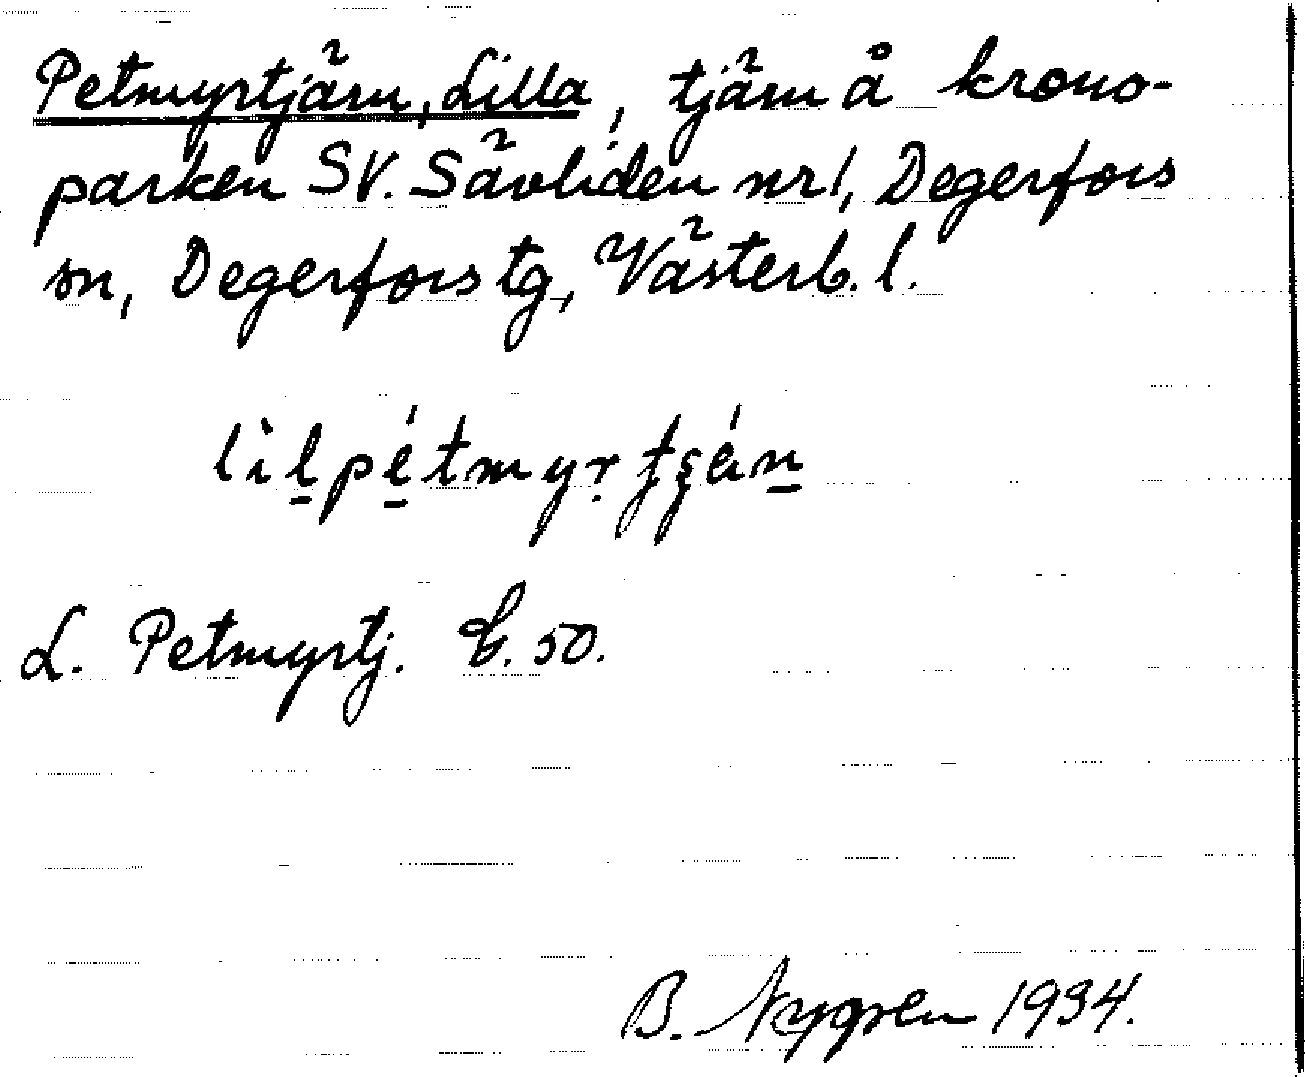 Petmyrtjärn, Lilla, tjärn å krono-
parken SV. Sävliden nr 1, Degerfors
sn, Degerfors tg, Västerb. l.
lìlpétmyrtʂén
L. Petmyrtj. E. 50.
B. Nygren 1934.